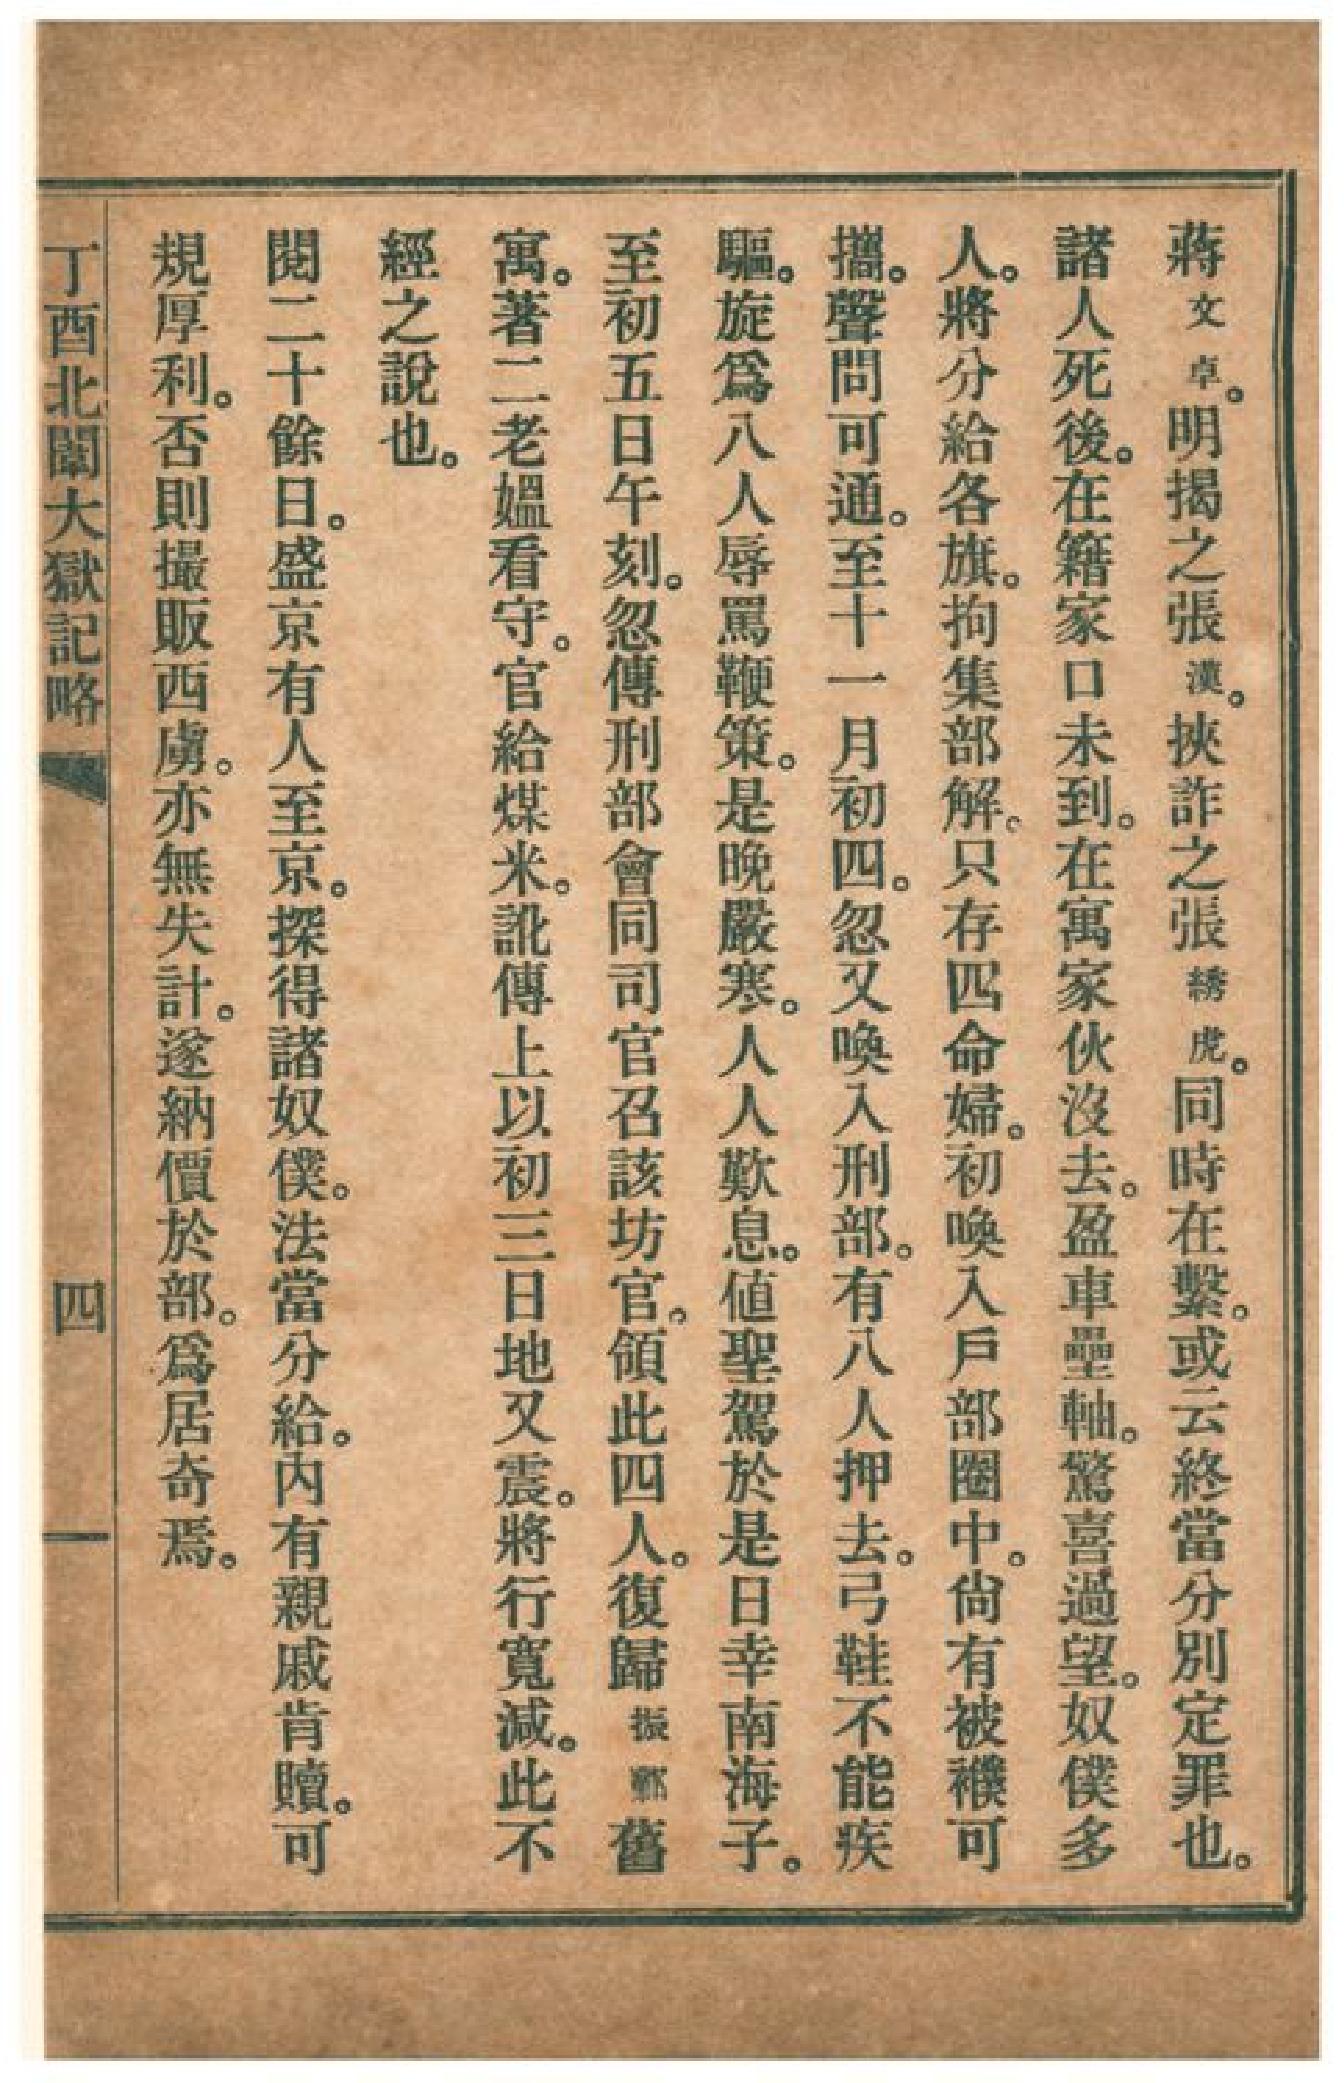 蔣文卓。明揭之張漢。挾詐之張綉虎。同時在繫。或云終當分別定罪也。
諸人死後。在籍家口未到。在寓家伙沒去。盈車壘軸。驚喜過望。奴僕多
人。將分給各旗。拘集部解。只存四命婦。初喚入戶部圈中。尙有被襆可
攜。聲問可通。至十一月初四。忽又喚入刑部。有八人押去。弓鞋不能疾
驅。旋爲八人辱罵鞭策。是晚嚴寒。人人歎息。値聖駕於是日幸南海子。
至初五日午刻。忽傳刑部會同司官召該坊官。領此四人。復歸振鄴舊
寓。著二老媼看守。官給煤米。訛傳上以初三日地又震。將行寬減。此不
經之說也。
閱二十餘日。盛京有人至京。探得諸奴僕。法當分給。內有親戚肯贖。可
規厚利。否則撮販西虜。亦無失計。遂納價於部。爲居奇焉。
丁酉北闈大獄記略
四